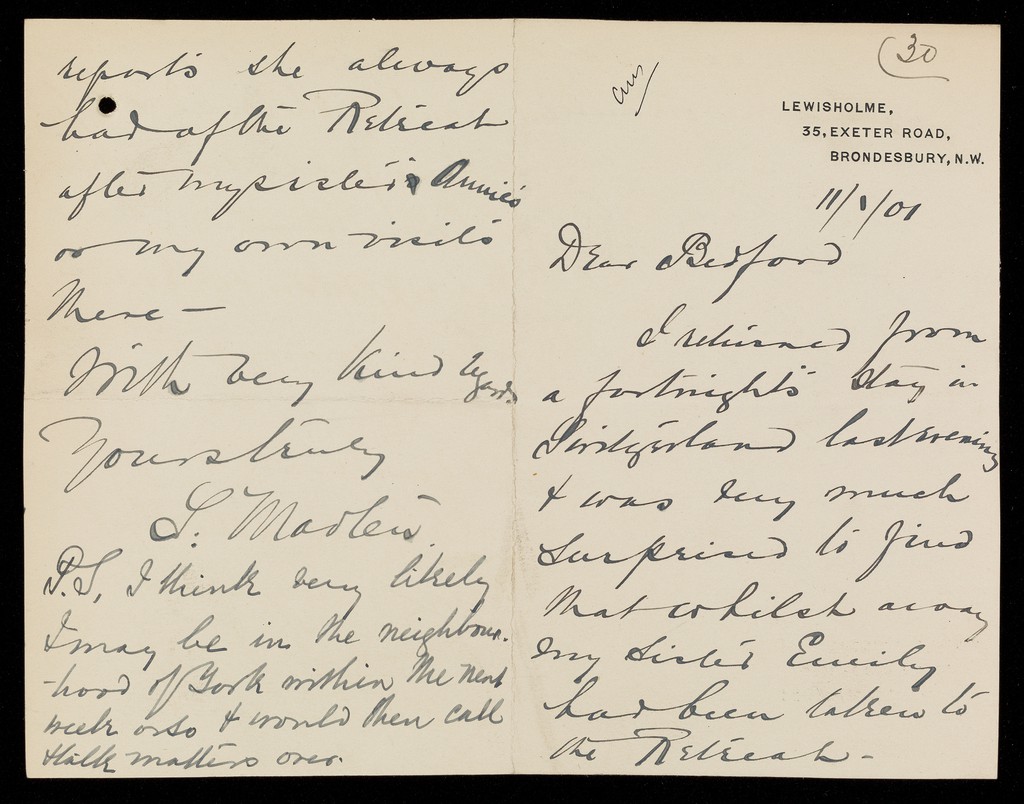 (30
ans
LEWISHOLME,
35, EXETER ROAD,
BRONDESBURY, N.W.
11/1/01
Dear Bedford
I returned from
a fortnight's stay in
Switzerland last evening
& was very much
surprised to find
that whilst away
my sister Emily
had been taken to
the Retreat -
reports she always
had of the Retreat
after my sister's Annie's
or my own visits
there -
With very kind regards.
Yours truly
S.
P.S, I think very likely
I may be in the neighbour-
hood of York within the next
week or so & would then call
& talk matters over.